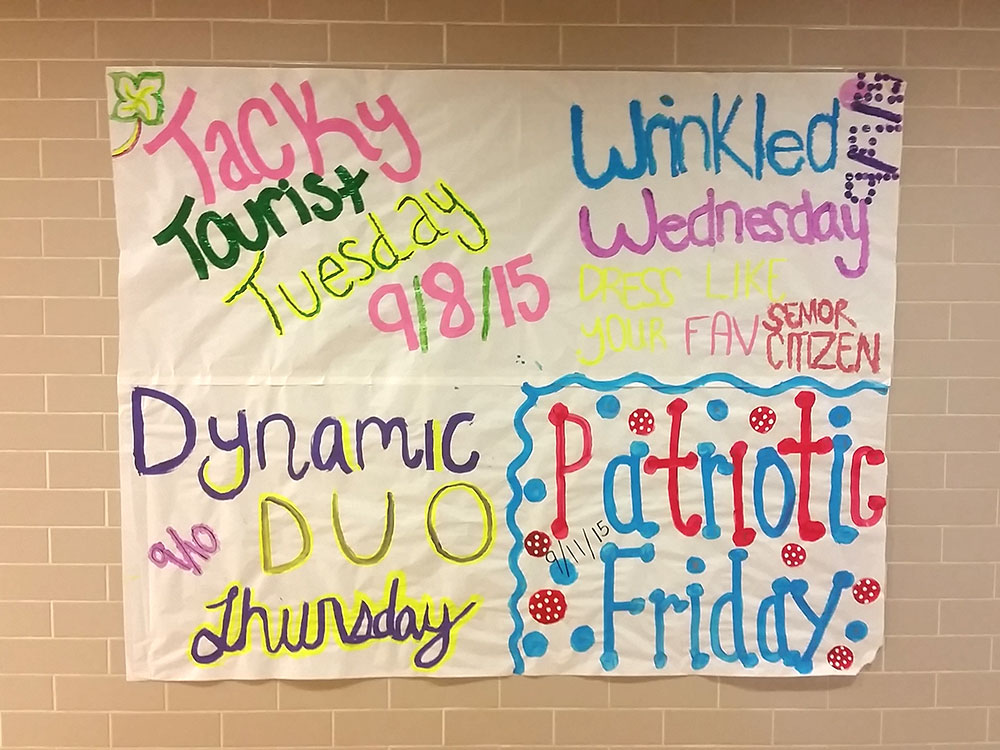 Tacky
Tourist
Tuesday
9/8/15
Wrinkled
9/9/15
Wednesday
DRESS LIKE
YOUR FAV SEMOR
CITIZEN
Dynamic
DUO
9/10
Thursday
Patriotic
9/11/15
Friday